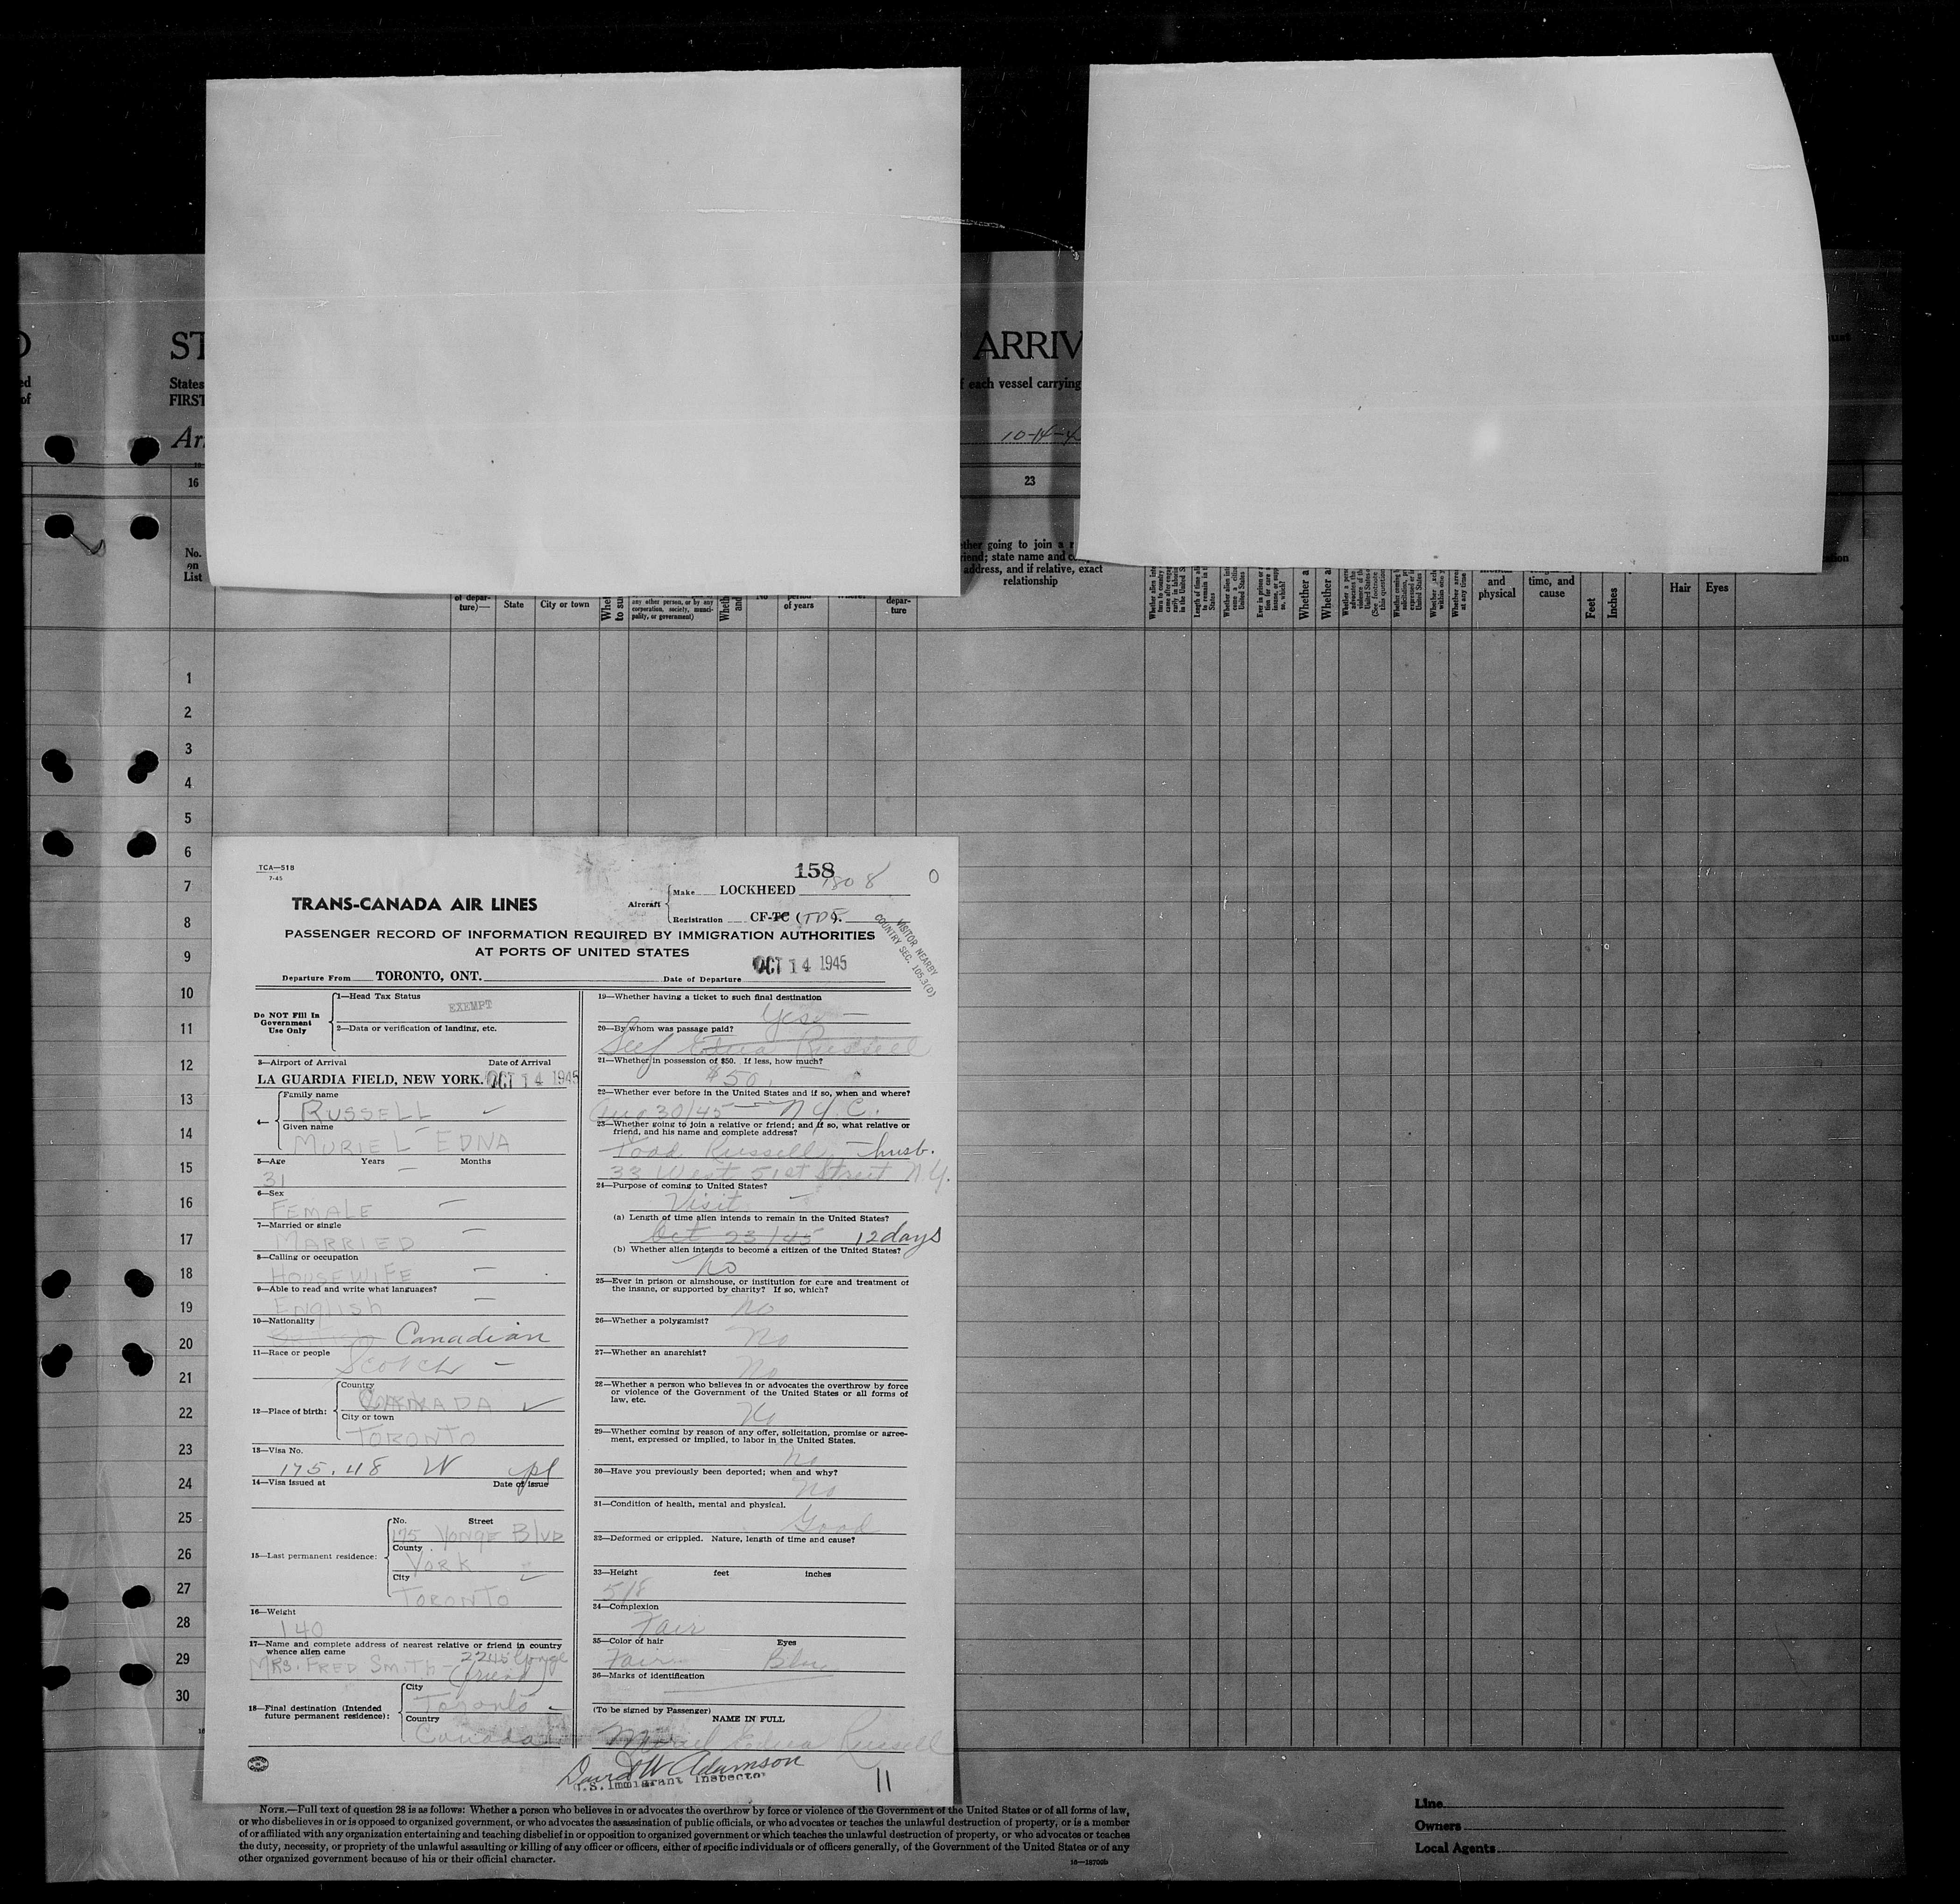 ST
ARRIV
States
FIRST
each vessel carrying
10-14-4
16
23
No.
on
List
of depar-
ture)—
State
City or town
any other person, or by any
corporation, society, munici-
pality, or government)
of years
depar-
ture
address, and if relative, exact
relationship
and
physical
time, and
cause
Feet
Inches
Hair
Eyes
1
2
3
4
5
6
7
8
9
10
11
12
13
14
15
16
17
18
19
20
21
22
23
24
25
26
27
28
29
30
TCA—518
7-45
158
Aircraft
Make LOCKHEED 1808
Registration CF-TC (TDF).
TRANS-CANADA AIR LINES
PASSENGER RECORD OF INFORMATION REQUIRED BY IMMIGRATION AUTHORITIES
AT PORTS OF UNITED STATES
VISITOR NEARBY
COUNTRY SEC. 105.3(D)
Departure From TORONTO, ONT. Date of Departure OCT 14 1945
Do NOT Fill In
Government
Use Only
1—Head Tax Status
EXEMPT
2—Data or verification of landing, etc.
3—Airport of Arrival Date of Arrival
LA GUARDIA FIELD, NEW YORK. OCT 14 1945
4—
Family name
RUSSELL
Given name
MURIEL EDNA
5—Age Years Months
31
6—Sex
FEMALE
7—Married or single
MARRIED
8—Calling or occupation
HOUSEWIFE
9—Able to read and write what languages?
English
10—Nationality
Canadian
11—Race or people
Scotch
12—Place of birth:
Country
CANADA
City or town
TORONTO
13—Visa No.
175.48 W
14—Visa issued at Date of issue
15—Last permanent residence:
No. Street
175 YONGE BLVD
County
YORK
City
TORONTO
16—Weight
140
17—Name and complete address of nearest relative or friend in country
whence alien came
MRS. FRED SMITH - 2245 Yonge
(friend)
18—Final destination (Intended
future permanent residence):
City
Toronto
Country
Canada
19—Whether having a ticket to such final destination
Yes
20—By whom was passage paid?
Self Edna Russell
21—Whether in possession of $50. If less, how much?
$50.
22—Whether ever before in the United States and if so, when and where?
Aug 30/45 — N.Y.C.
23—Whether going to join a relative or friend; and if so, what relative or
friend, and his name and complete address?
Todd Russell — husb.
33 West 51st Street N.Y.
24—Purpose of coming to United States?
Visit
(a) Length of time alien intends to remain in the United States?
Oct 23/45 12 days
(b) Whether alien intends to become a citizen of the United States?
No
25—Ever in prison or almshouse, or institution for care and treatment of
the insane, or supported by charity? If so, which?
No
26—Whether a polygamist?
No
27—Whether an anarchist?
No
28—Whether a person who believes in or advocates the overthrow by force
or violence of the Government of the United States or all forms of
law, etc.
No
29—Whether coming by reason of any offer, solicitation, promise or agree-
ment, expressed or implied, to labor in the United States.
No
30—Have you previously been deported; when and why?
No
31—Condition of health, mental and physical.
Good
32—Deformed or crippled. Nature, length of time and cause?
33—Height feet inches
5/8
34—Complexion
Fair
35—Color of hair Eyes
Fair Blue
36—Marks of identification
(To be signed by Passenger)
NAME IN FULL
Muriel Edna Russell
David W Adamson
U.S. Immigrant Inspector
11
NOTE.—Full text of question 28 is as follows: Whether a person who believes in or advocates the overthrow by force or violence of the Government of the United States or of all forms of law,
or who disbelieves in or is opposed to organized government, or who advocates the assassination of public officials, or who advocates or teaches the unlawful destruction of property, or is a member
of or affiliated with any organization entertaining and teaching disbelief in or opposition to organized government or which teaches the unlawful destruction of property, or who advocates or teaches
the duty, necessity, or propriety of the unlawful assaulting or killing of any officer or officers, either of specific individuals or of officers generally, of the Government of the United States or of any
other organized government because of his or their official character.
Line
Owners
Local Agents